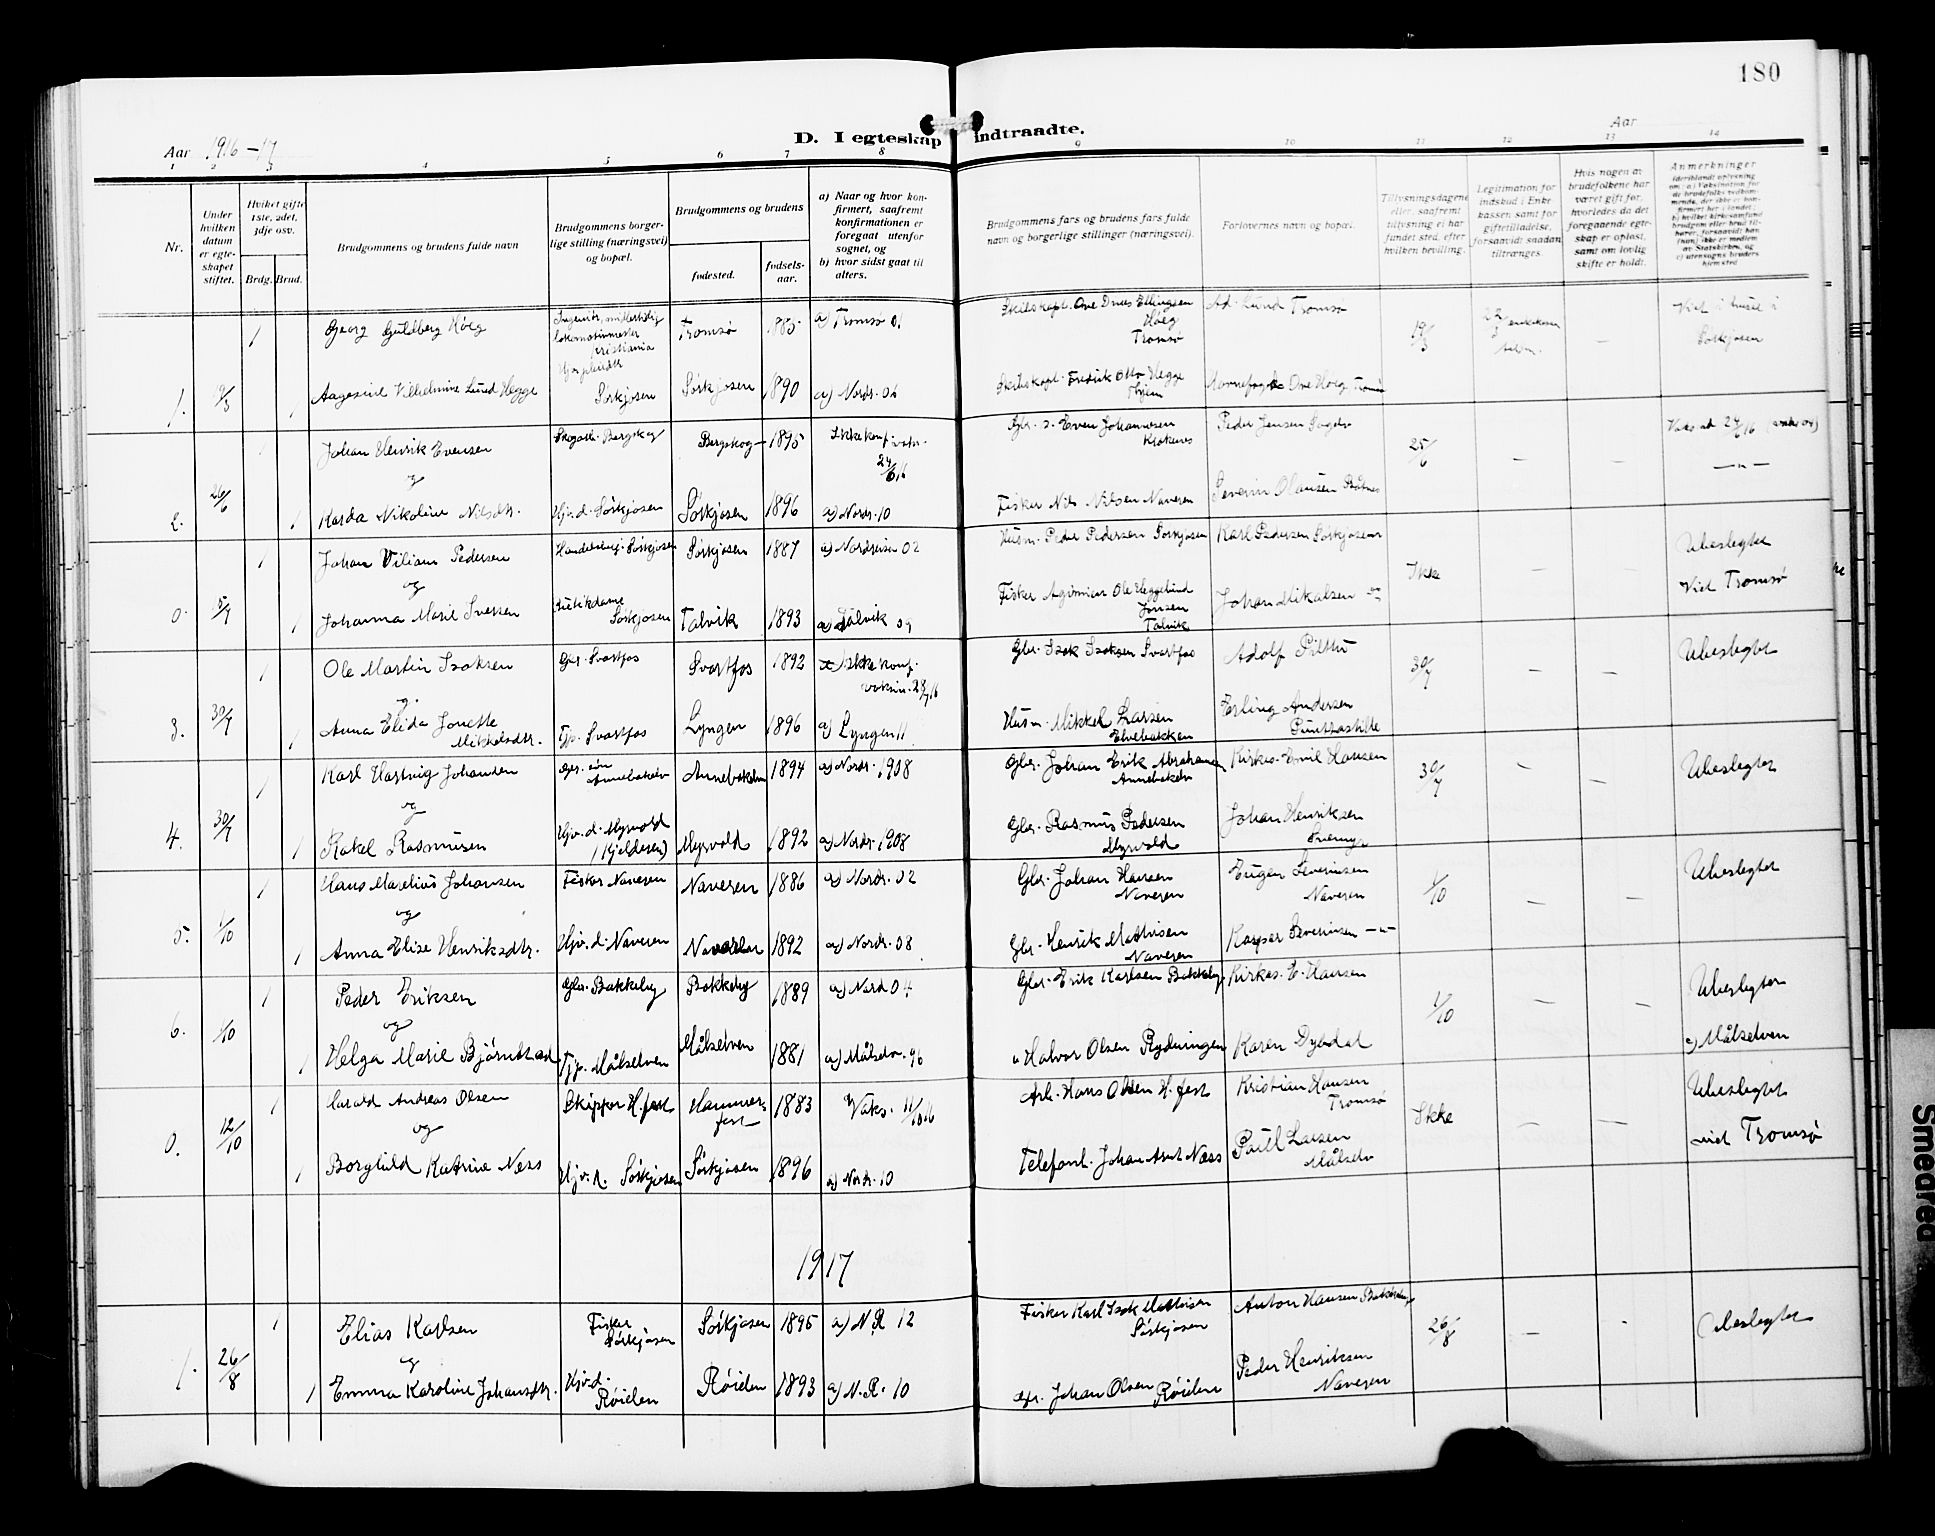 180
D. I egteskap indtraadte.
Aar 1916-17
Aar
1 2 3 4 5 6 7 8 9 10 11 12 13 14
Nr.
Under hvilken datum er egteskapet stiftet.
Hvilket gifte 1ste, 2det, 3dje osv.
Brdg. Brud.
Brudgommens og brudens fulde navn
Brudgommens borgerlige stilling (næringsvei) og bopæl.
Brudgommens og brudens
fødested.
fødselsaar.
a) Naar og hvor konfirmert, saafremt konfirmationen er foregaat utenfor sognet, og
b) hvor sidst gaat til alters.
Brudgommens fars og brudens fars fulde navn og borgerlige stillinger (næringsvei).
Forlovernes navn og bopæl.
Tillysningsdagene eller, saafremt tillysning ei har fundet sted, efter hvilken bevilling.
Legitimation for indskud i Enkekassen samt for giftetilladelse, forsaavidt saadan tiltrænges.
Hvis nogen av brudefolkene har været gift før, hvorledes da det foregaaende egteskap er opløst, samt om lovlig skifte er holdt.
Anmerkninger
1 Georg Guldberg Höeg
Tromsø 1885 a) Tromsø 01
Ad. Lund Tromsø
19/3
Tromsø
1. 19/3 1 Aagesine Vilhelmine Lund Hegge
Sørkjosen Sørkjosen 1890 a) Nordr. 06
Sørkjosen
1 Johan Henrik Evensen
Bergskog 1895 Ikke konf.
24/6 16
Gbr. s. Even Johannesen
Peder Jensen
25/6 - -
og
2. 26/6 1 Karda Nikoline Nilsdtr.
Hjv. d. Sørkjosen Sørkjosen 1896 a) Nordr. 10
Fisker Nils Nilsen Naveren
Severin Olausen
1 Johan Viliam Pedersen
Sørkjosen Sørkjosen 1887 a) Nordreisa 02
Husm. Peder Pedersen Sørkjosen
Karl Pedersen Sørkjosen
Ikke - - Ubeslegtet
og
0. 5/7 1 Johanna Marie Iversen
Butikdame Sørkjosen Talvik 1893 a) Talvik 09
Talvik
Johan Mikalsen -"-
Viet Tromsø
1 Ole Martin Isaksen
Gbr. Svartfos Svartfos 1892 Ikke konf.
vaksin.
Gbr. Isak Isaksen Svartfos
Adolf
30/7 - - Ubeslegtet
og
3. 30/7 1 Anna Elida Jonette Mikkelsdtr.
Tjp. Svartfos Lyngen 1896 a) Lyngen 11
Husm. Mikkel Larsen
Elvebakken
Erling Andersen
1 Karl Hartvig Johansen
Annebakken 1894 a) Nordr. 1908
Gbr. Johan Erik Abrahamsen
Kirkes. Emil Hansen
30/7 - - Ubeslegtet
og
4. 30/7 1 Rakel Rasmusen
Hjv. d. Myrvold
Myrvold 1892 a) Nordr. 1908
Gbr. Rasmus Pedersen
Myrvold
Johan Henriksen
1 Hans Marelius Johansen
Fisker Naveren Naveren 1886 a) Nordr. 02
Gbr. Johan Hansen
Naveren
Eugen Severinsen
Naveren
1/10 - - Ubeslegtet
og
5. 1/10 1 Anna Elise Henriksdtr.
Hjv. d. Naveren Naveren 1892 a) Nordr. 08
Gbr. Henrik Mathisen
Naveren
Kaspar Severinsen -"-
1 Peder Eriksen
Gbr. Bakkeby Bakkeby 1889 a) Nord 04
Gbr. Erik Karlsen Bakkeby
Kirkes. E. Hansen
1/10 - - Ubeslegtet
og
6. 1/10 1 Helga Marie Bjørnstad
Tjp. Målselven Målselven 1881 a) Målselv. 96
" Halvor Olsen Rydningen
Karen Dyrdal
c) Målselven
1 Harald Andreas Olsen
Skipper H.fest Hammerfest 1883 Vaks. 11/10 16
Arb. Hans Olsen H.fest
Kristian Hansen
Tromsø
Ikke - - Ubeslegtet
og
0. 12/10 1 Borghild Katrine Ness
Hjv. d. Sørkjosen Sørkjosen 1896 a) Nordr. 10
Telefonb. Johan Arnt Næss
Paul Larsen
Målselv
viet Tromsø
1917
1 Elias Karlsen
Fisker
Sørkjosen Sørkjosen 1895 a) N.R. 12
Fisker Karl Isak Mathisen
Sørkjosen
Anton Hansen Bakkeby
26/8 - - Ubeslegtet
og
1. 26/8 1 Emma Karoline Johansdtr.
Hjv. d.
Röielen Röielen 1893 a) N.R. 10
Gbr. Johan Olsen Röielen
Peder Henriksen
Naveren
Smedrea